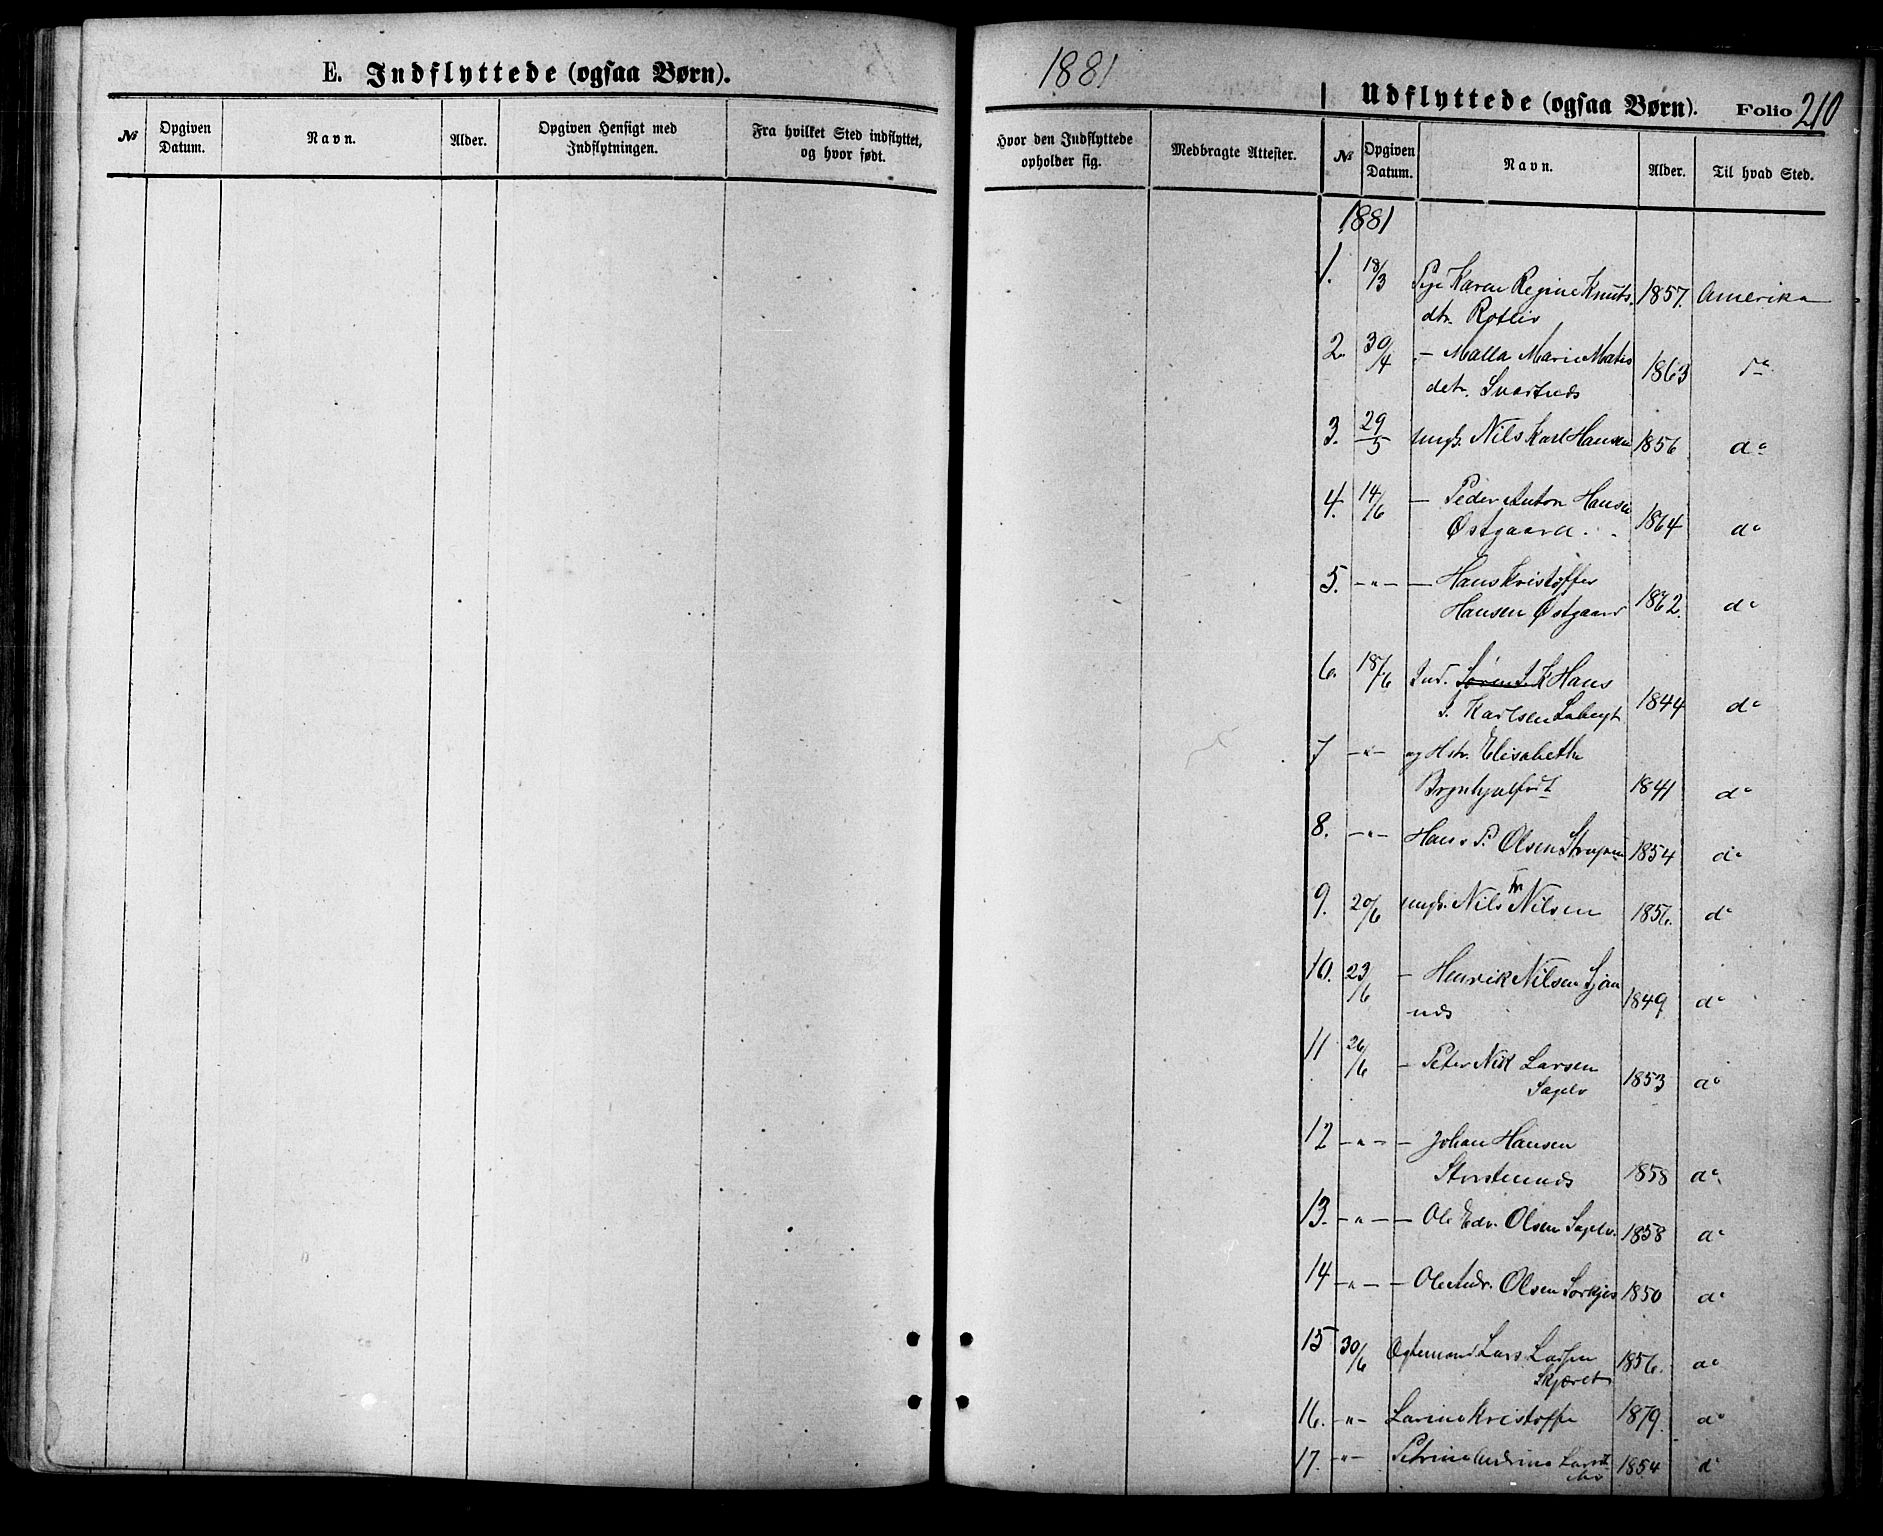 E. Indflyttede (ogsaa Børn).
№ Opgiven Datum. Navn. Alder. Opgiven Hensigt med Indflytningen. Fra hvilket Sted indflyttet, og hvor født.
1881
Udflyttede (ogsaa Børn). Folio 210
Hvor den Indflyttede opholder sig. Medbragte Attester. № Opgiven Datum. Navn. Alder. Til hvad Sted.
1881
1. 18/3 Pige Karen Regine Knuts- 1857. Amerika
dtr.
2. 30/4 — Malla Marie Mats 1863 do
detr. Svartnæs
3. 29/5 ungk. Nils Karl Hansen 1856 do
4. 14/6 — Peder Anton Hansen
Østgaard 1864 do
5. —"— — Hans Kristoffer
Hansen Østgaard 1862. do
6. 18/6 Ind. Hans
Karlsen 1844 do
7 —"— og Hstr. Elisabeth
1841 do
8. —"— Hans P. Olsen 1854 do
9. 20/6 ungk. Nils Fr. Nilsen 1856. do
10. 23/6 — Henrik Nilsen
næs 1849 do
11 26/6 — Peter Nik Larsen
Sagelv 1853 do
12 —"— — Johan Hansen
Storstennæs 1858 do
13. —"— — Ole Edv. Olsen Sagelv. 1858 do
14 —"— — Ole Andr. Olsen Sørkjos 1850 do
15 30/6 Lars Larsen 1856. do
Skjæret
16. —"— Larine Kristoffa 1879. do
17. —"— Petrine Andrine 1854 do